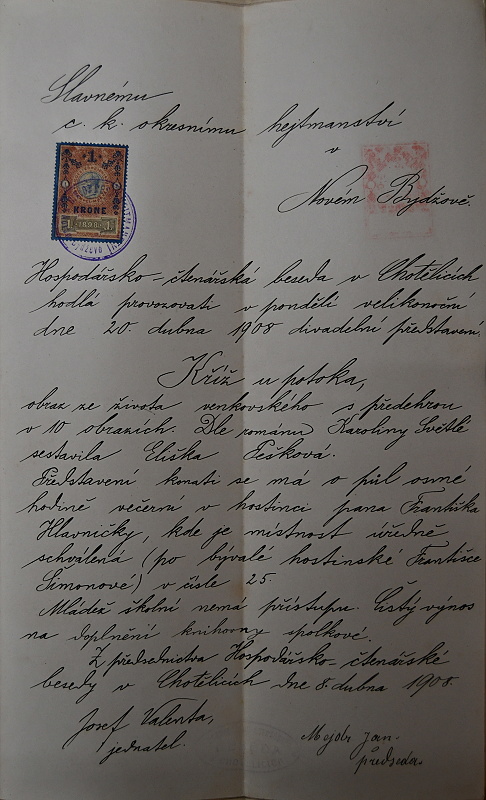 Slavnému
c. k. okresnímu hejtmanství
v
Novém Bydžově.
1
KRONE
1 1898 1
Hospodářsko-čtenářská beseda v Chotělicích
hodlá provozovati v pondělí velikonoční
dne 20. dubna 1908 divadelní představení.
Kříž u potoka,
obraz ze života venkovského s předehrou
v 10 obrazích. Dle románu Karoliny Světlé
sestavila Eliška Pešková.
Představení konati se má o půl osmé
hodině večerní v hostinci pana Františka
Hlavničky, kde je místnost úředně
schválená (po bývalé hostinské Františce
Šimonové) v čísle 25.
Mládež školní nemá přístupu. Čistý výnos
na doplnění knihovny spolkové.
Z předsednictva Hospodářsko-čtenářské
besedy v Chotělicích dne 8. dubna 1908.
Josef Valenta,
jednatel.
Mejdr Jan
předseda